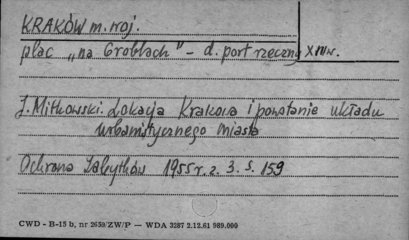 KRAKÓW m. woj.
plac „na Groblach" – d. port rzeczny XIII w.
J. Mitkowski. Lokacja Krakowa i powstanie układu
urbanistycznego miasta
Ochrona Zabytków 1955 r. z. 3. s. 159
CWD - B-15 b, nr 2659/ZW/P — WDA 3287 2.12.61 989.000